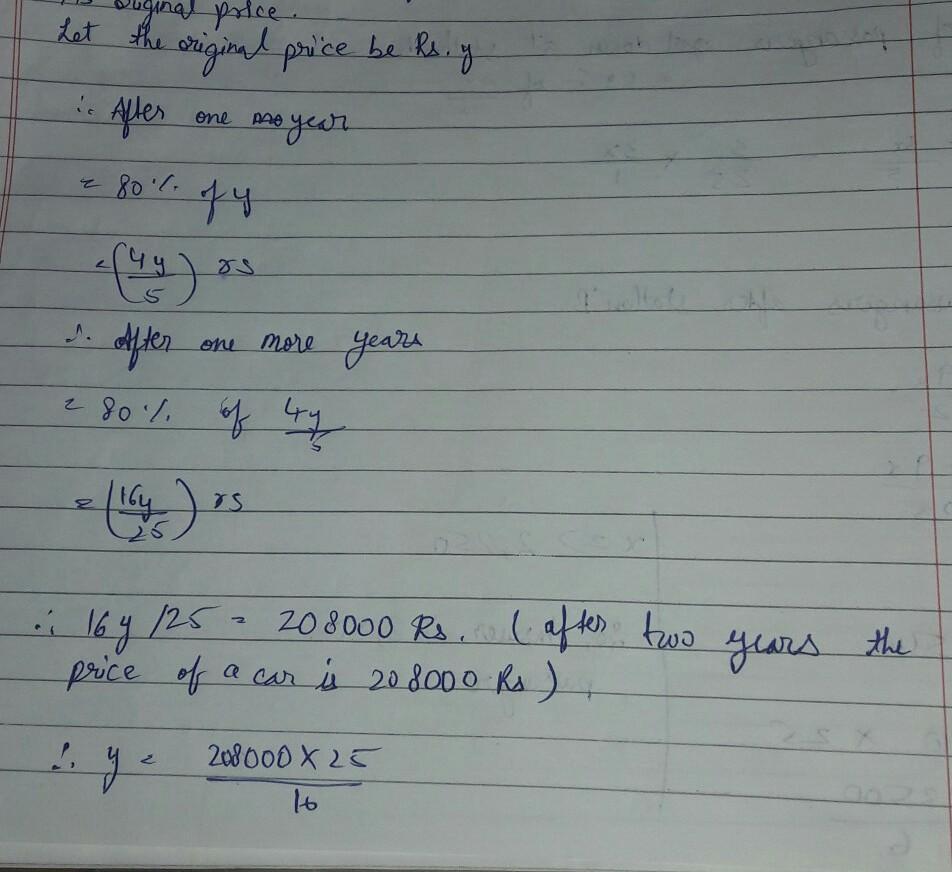 original price.
Let the original price be Rs. y
∴ After one year
= 80 % of y
= (4y/5) rs
∴ After one more years
= 80 % of 4y/5
= (16y/25) rs
∴ 16y /25 = 208000 Rs. (after two years the
price of a car is 208000 Rs)
∴ y = 208000 X 25
16